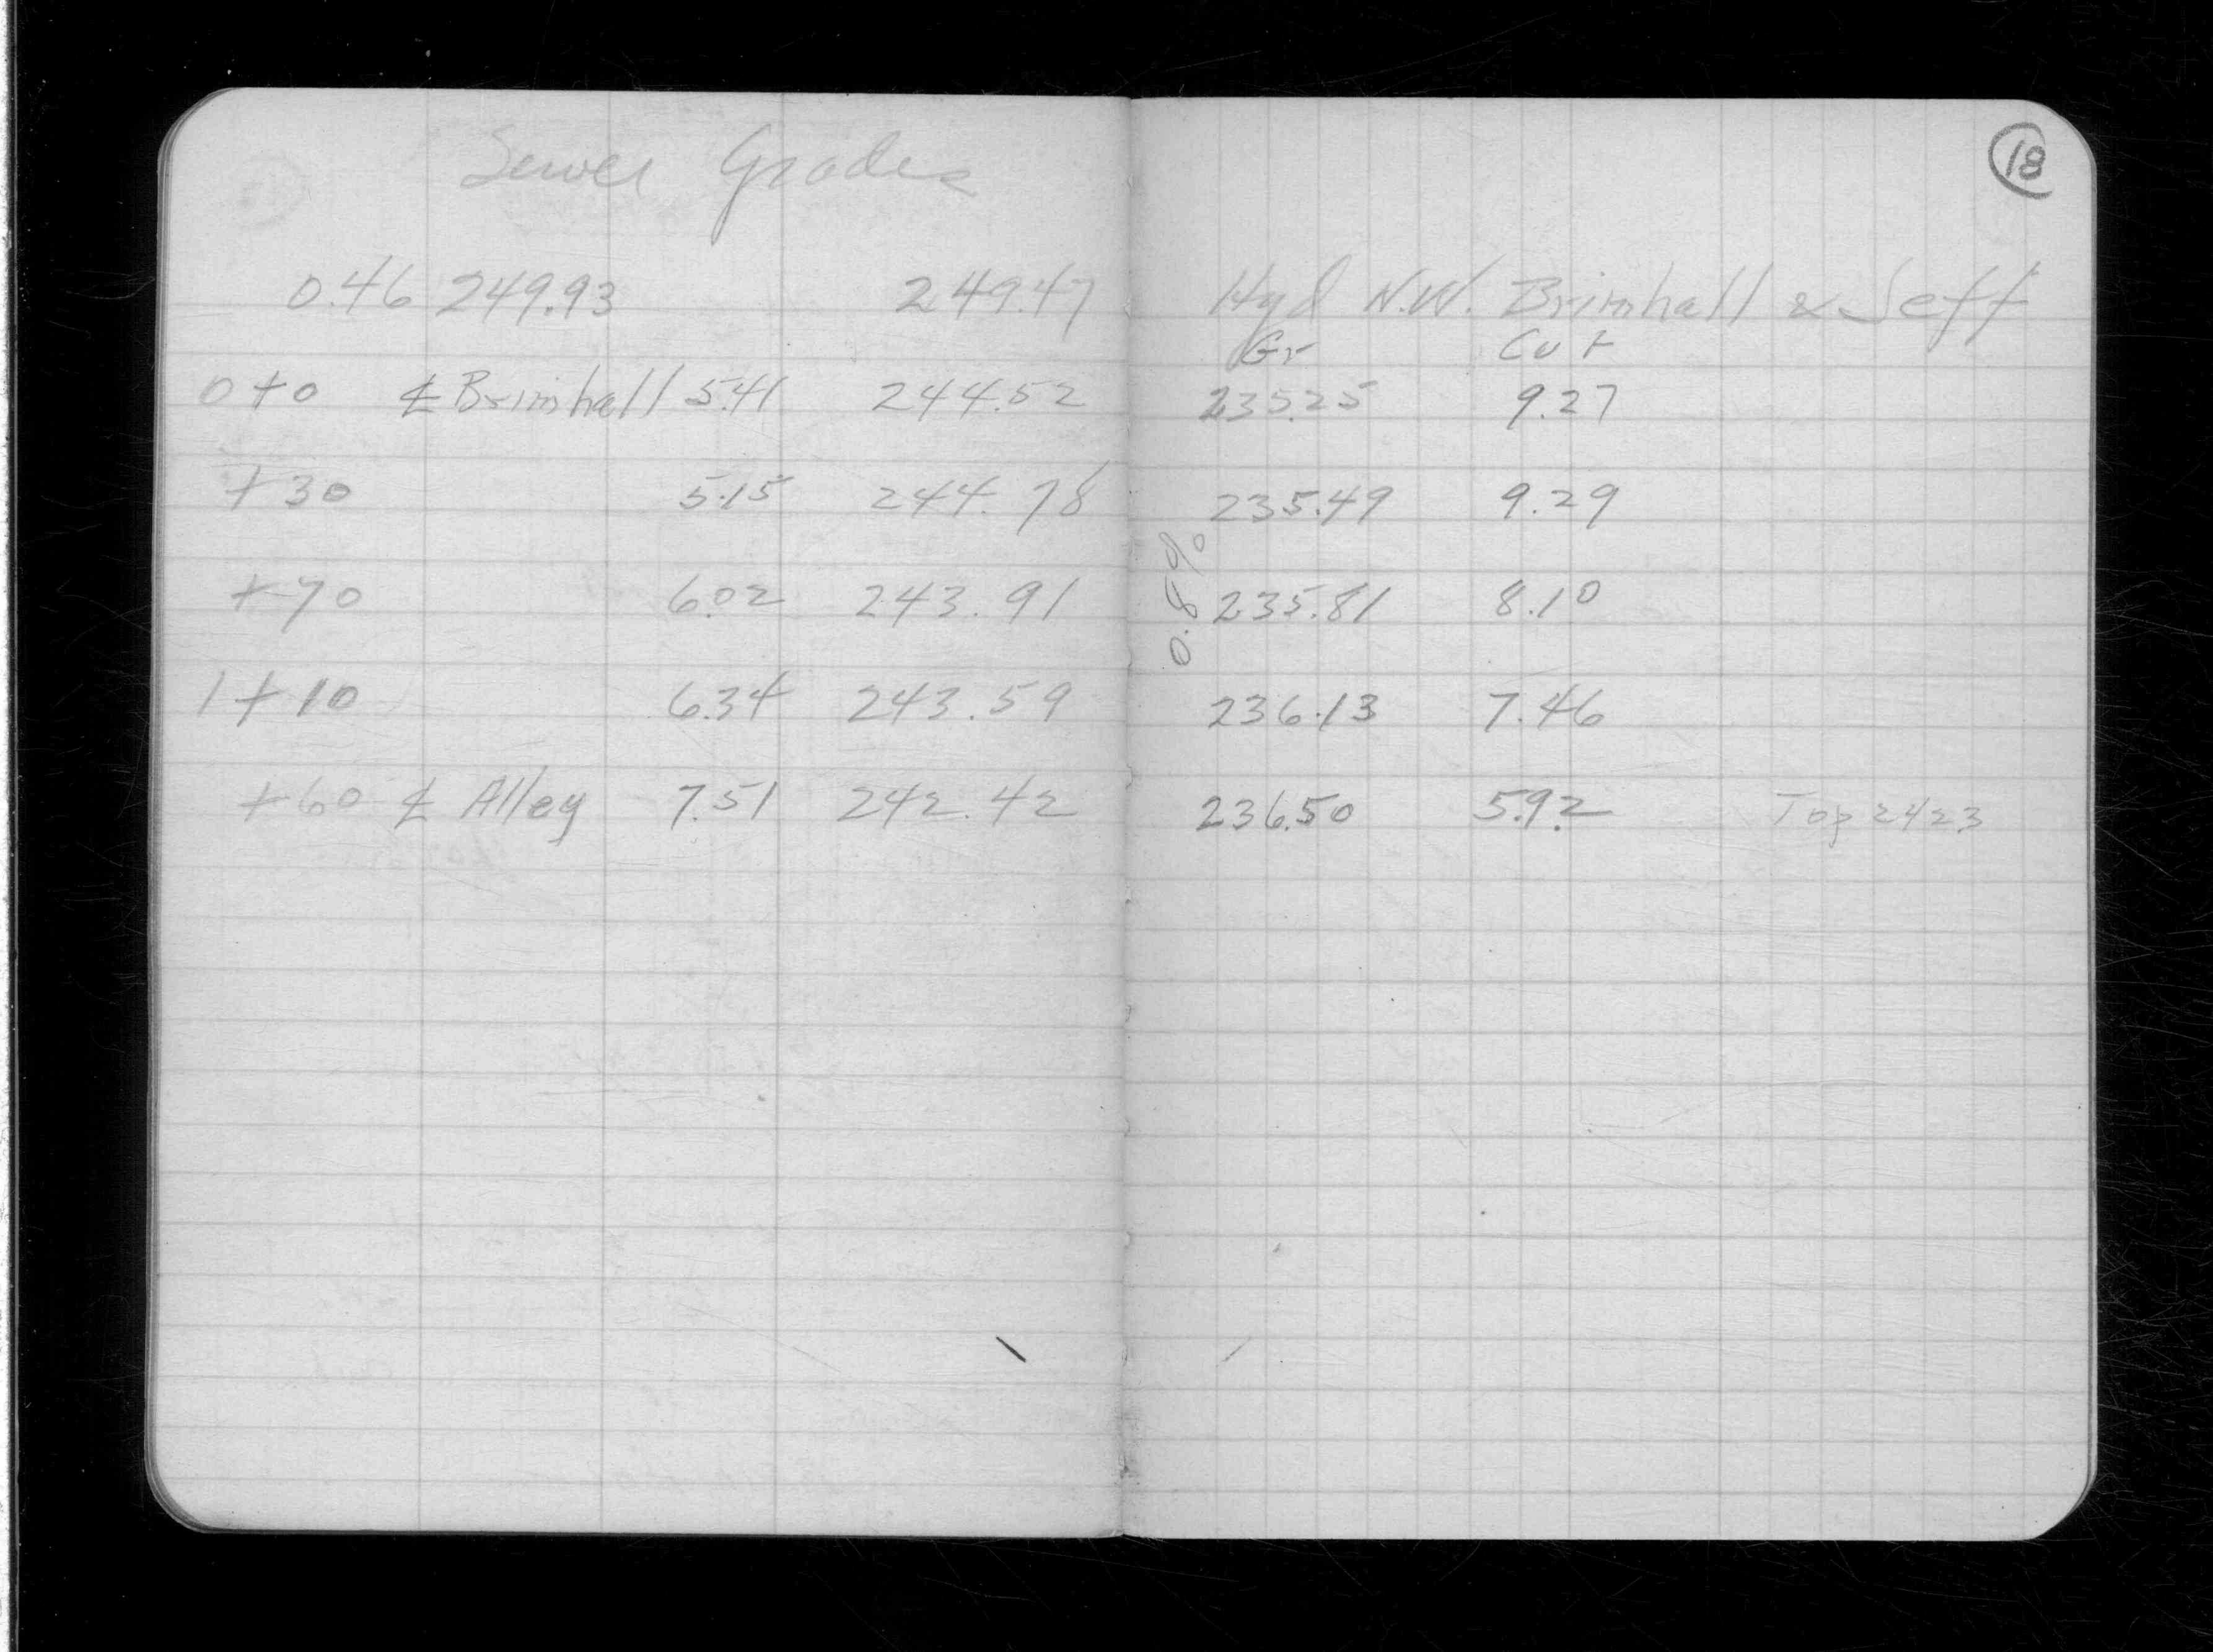 18
Sewer Grades
0.46 249.93 249.47 Hyd N.W. Brimhall & Jeff
Gr Cut
0+0 ℄ Brimhall 5.41 244.52 235.25 9.27
+30 5.15 244.78 235.49 9.29
0.8%
+70 6.02 243.91 235.81 8.10
1+10 6.34 243.59 236.13 7.46
+60 ℄ Alley 7.51 242.42 236.50 5.92 Top 242.3